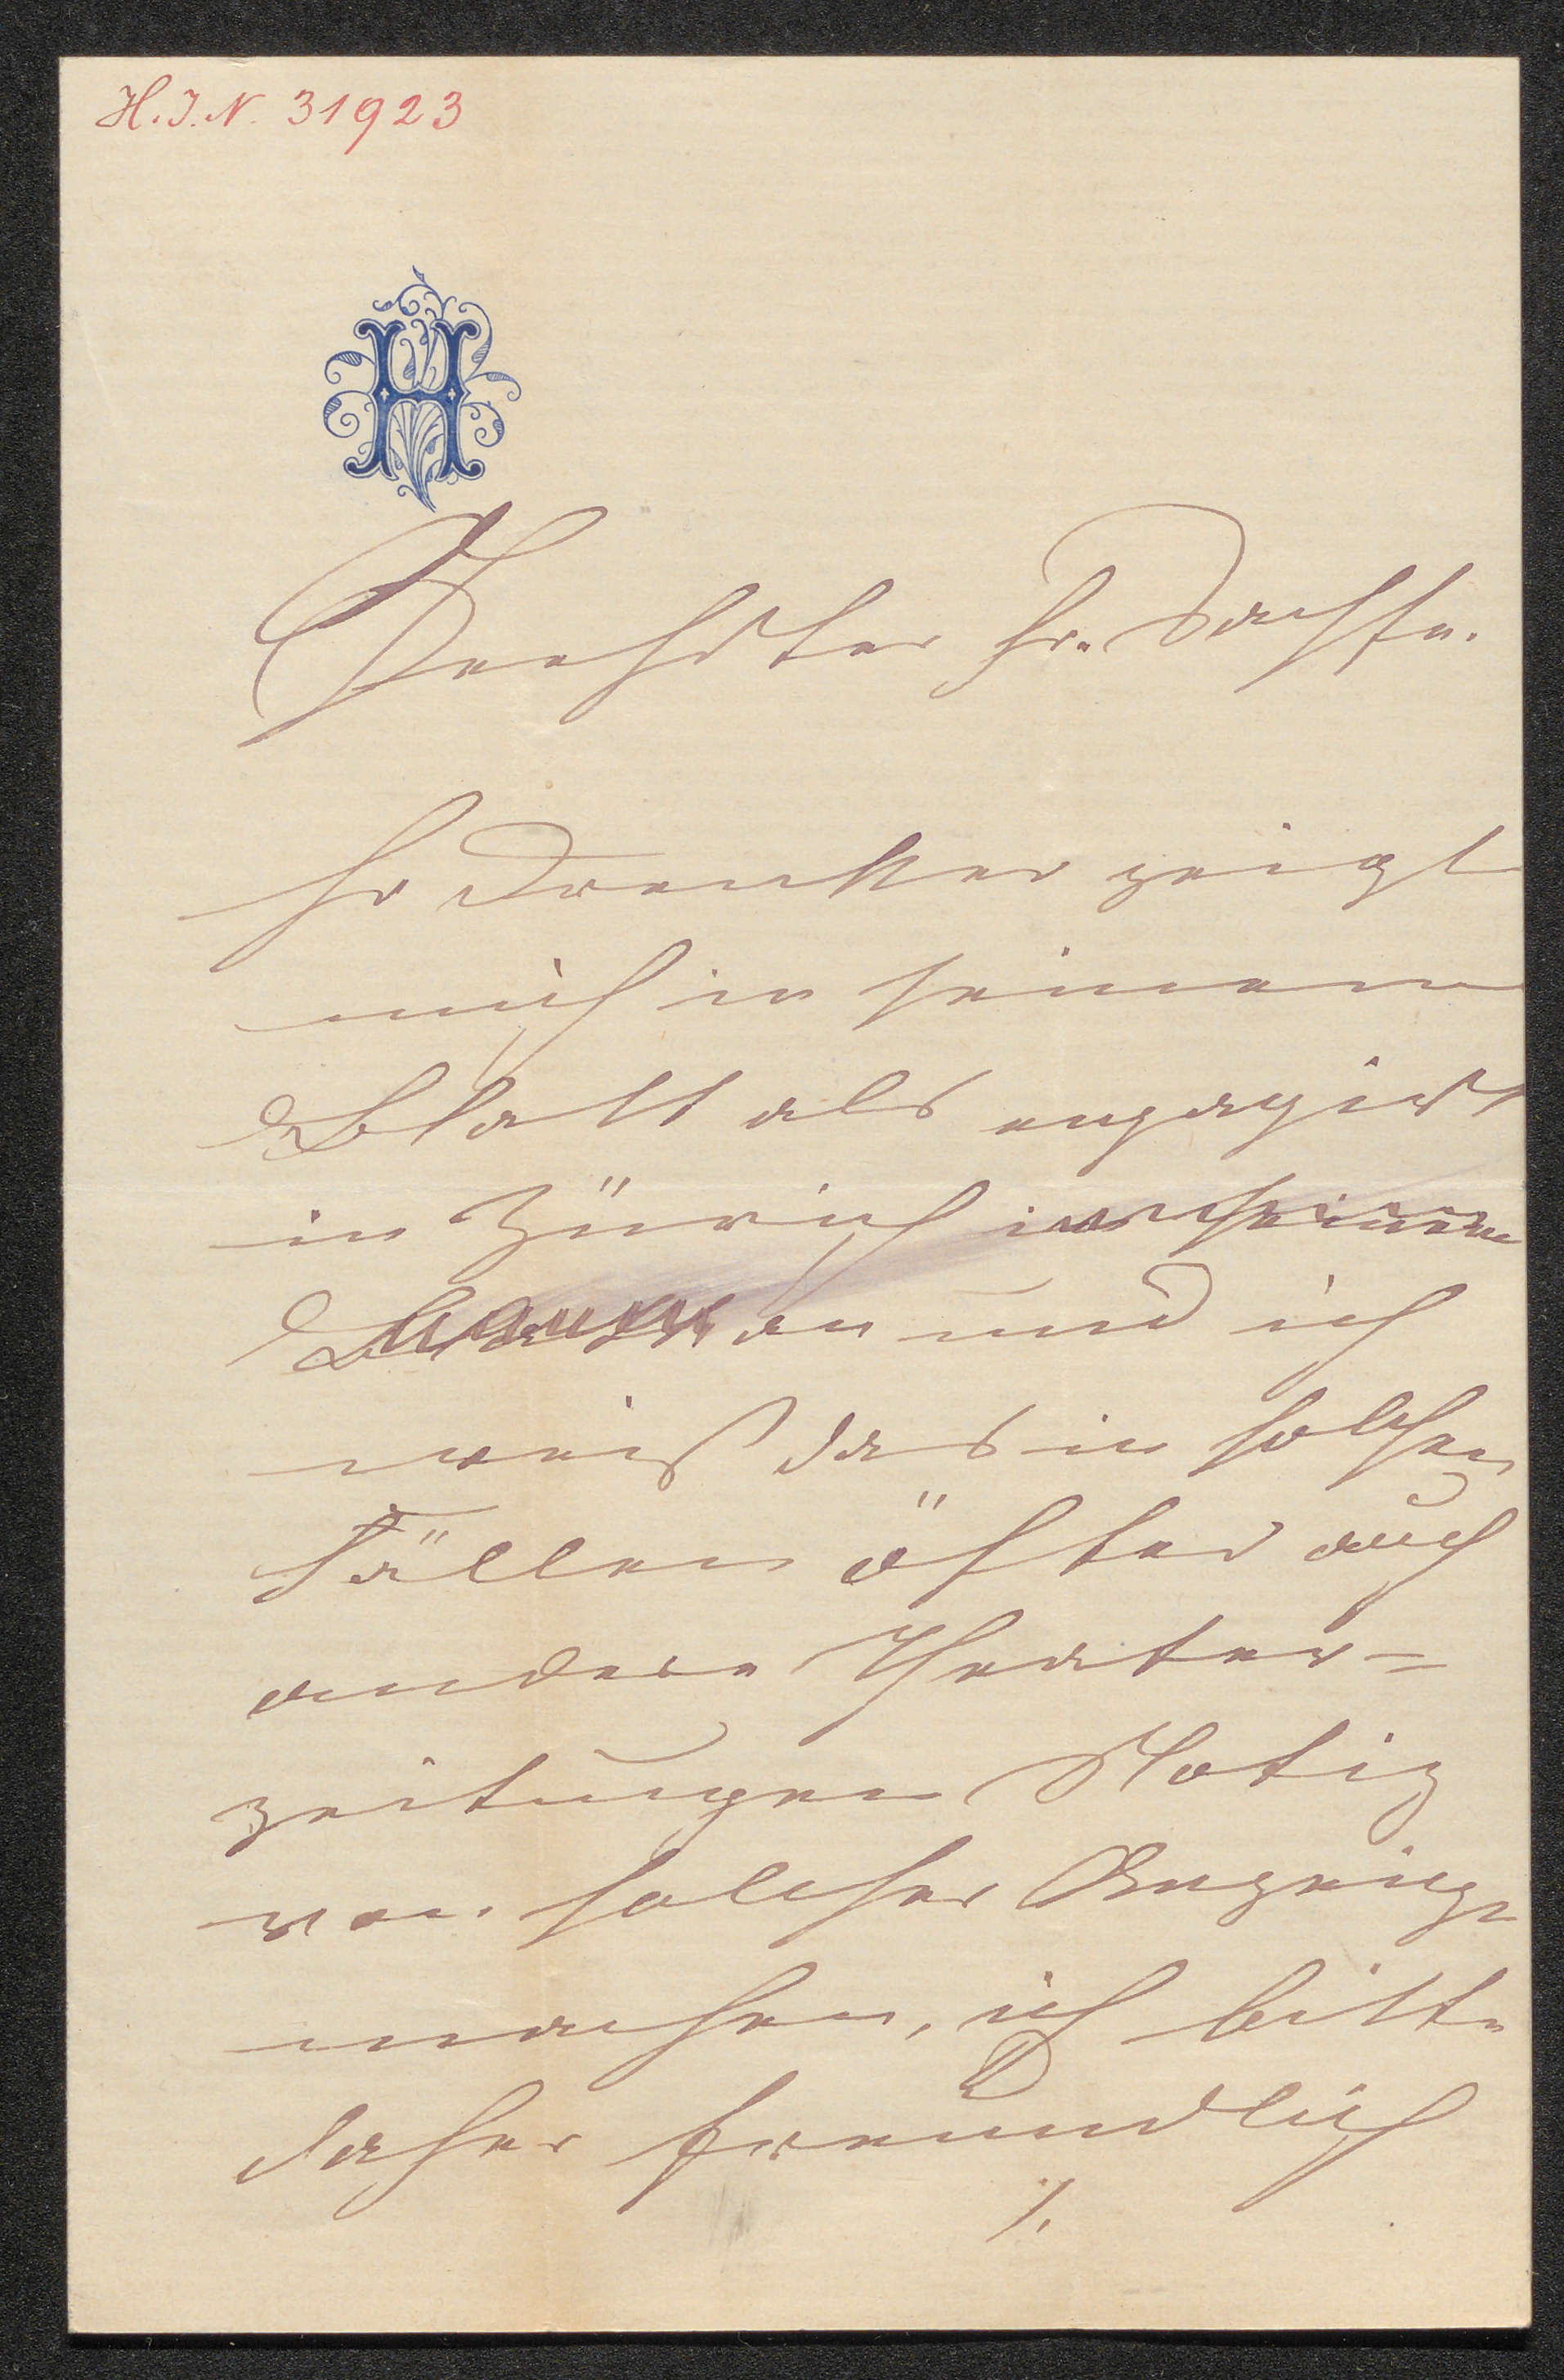 H.I.N. 31923
H
Geehrter Hr. Sachse.
Hr Drenker zeigt
mich in seinem
Blatt als engagirt
in Zürich
an und ich
weiß das in solchen
Fällen öfter auch
andere Theater-
zeitungen Notiz
von solcher Anzeige
machen, ich bitte
daher freundlich
/.